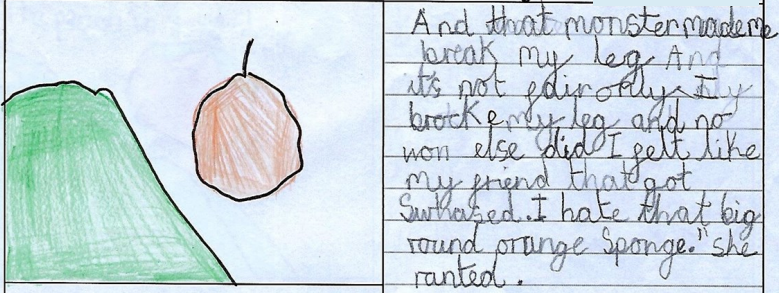 And that monster made me
break my leg And
it's not fair only I
brocke my leg and no
won else did I felt like
my friend that got
Swhased. I hate that big
round orange Sponge." she
ranted.